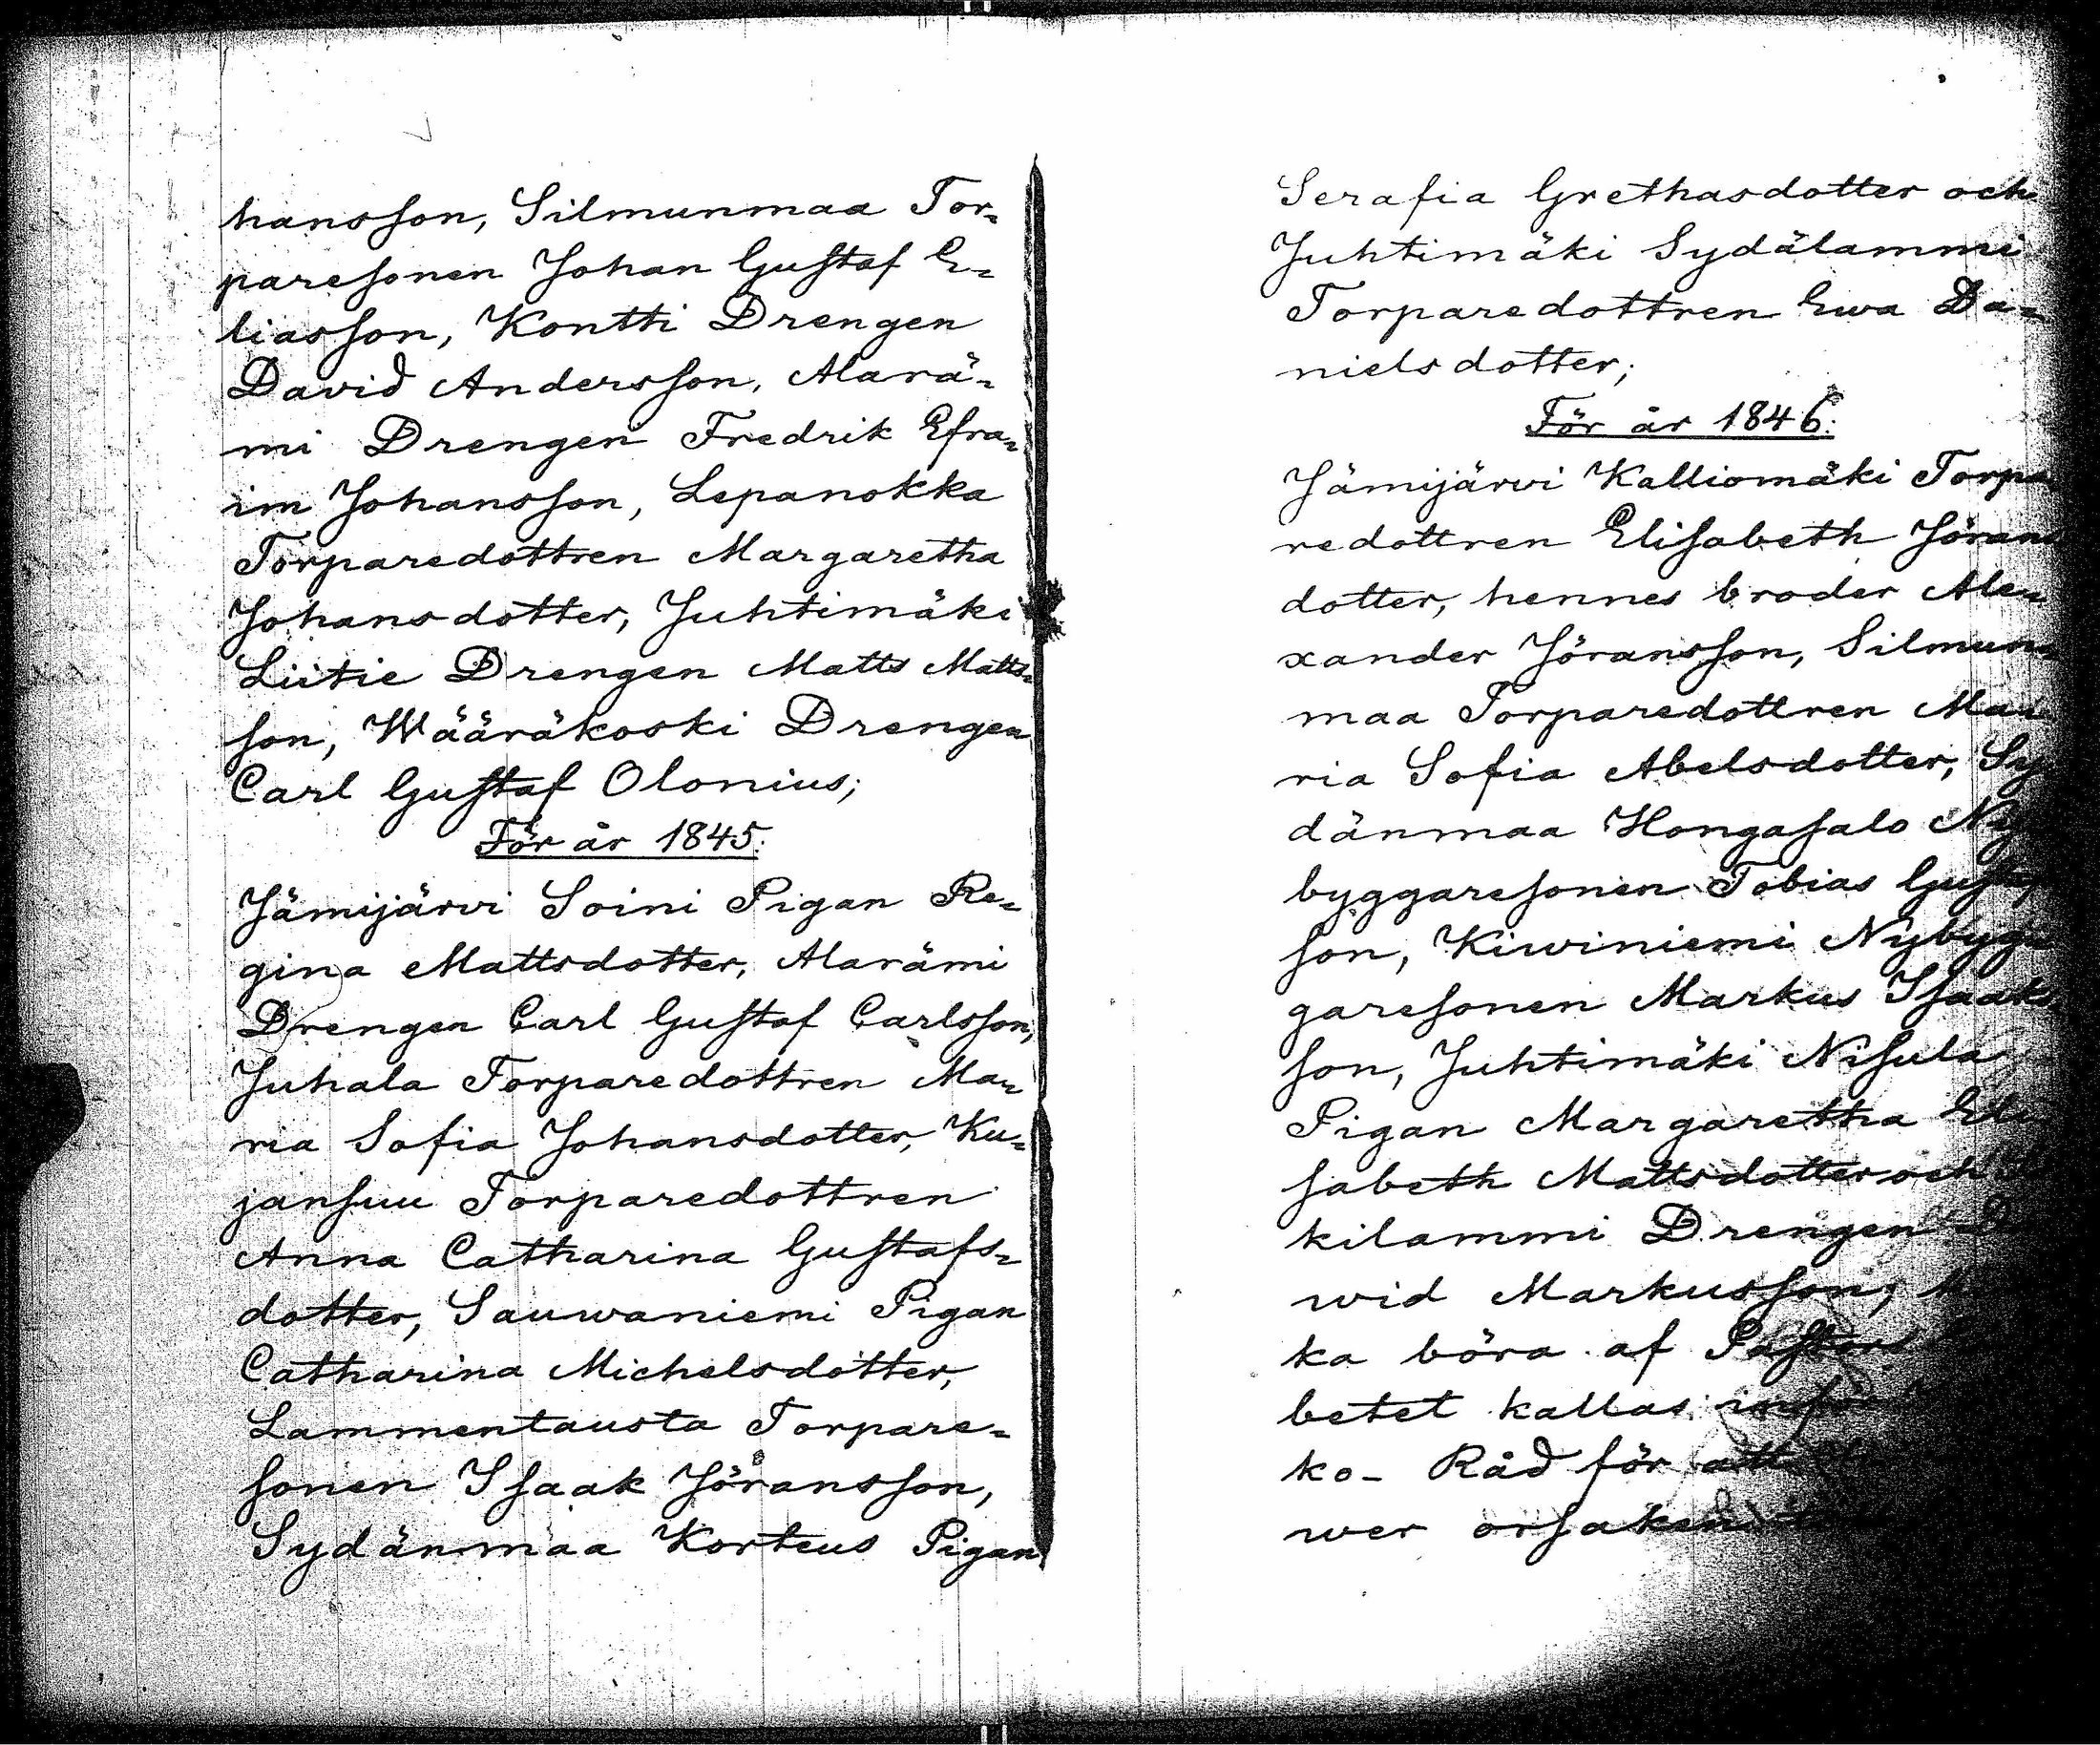 hansson, Silmunmaa Tor=
paresonen Johan Gustaf E=
liasson, Kontti Drengen
David Andersson, Alarä=
mi Drengen Fredrik Efra=
im Johansson, Lepanokka
Torparedottren Margaretha
Johansdotter, Juhtimäki
Liitie Drengen Matts Matts=
son, Wääräkoski Drengen
Carl Gustaf Olonius;
För år 1845:
Jämijärvi Soini Pigan Re=
gina Mattsdotter, Alarämi
Drengen Carl Gustaf Carlsson,
Juhala Torparedottren Ma=
ria Sofia Johansdotter, Ku=
jansuu Torparedottren
Anna Catharina Gustafs=
dotter, Sauwaniemi Pigan
Catharina Michelsdotter,
Lammentausta Torpare=
sonen Isaak Jöransson,
Sydänmaa Korteus Pigan
Serafia Grethasdotter och
Juhtimäki Sydälammi
Torparedottren Ewa Da=
nielsdotter;
För år 1846:
Jämijärvi Kalliomäki Torpa
redottren Elisabeth Jörans
dotter, hennes broder Ale=
xander Jöransson, Silmun=
maa Torparedottren Ma=
ria Sofia Abelsdotter, Sy
dänmaa Hongasalo Ny
byggaresonen Tobias Gustaf
son, Kiwiniemi Nybyg=
garesonen Markus Isaaks
son, Juhtimäki Nisula
Pigan Margaretha Eli
sabeth Mattsdotter och
kilammi Drengen
wid Markusson;
ka böra af Pastors
betet kallas inför
ko- Råd för att
wer orsaken